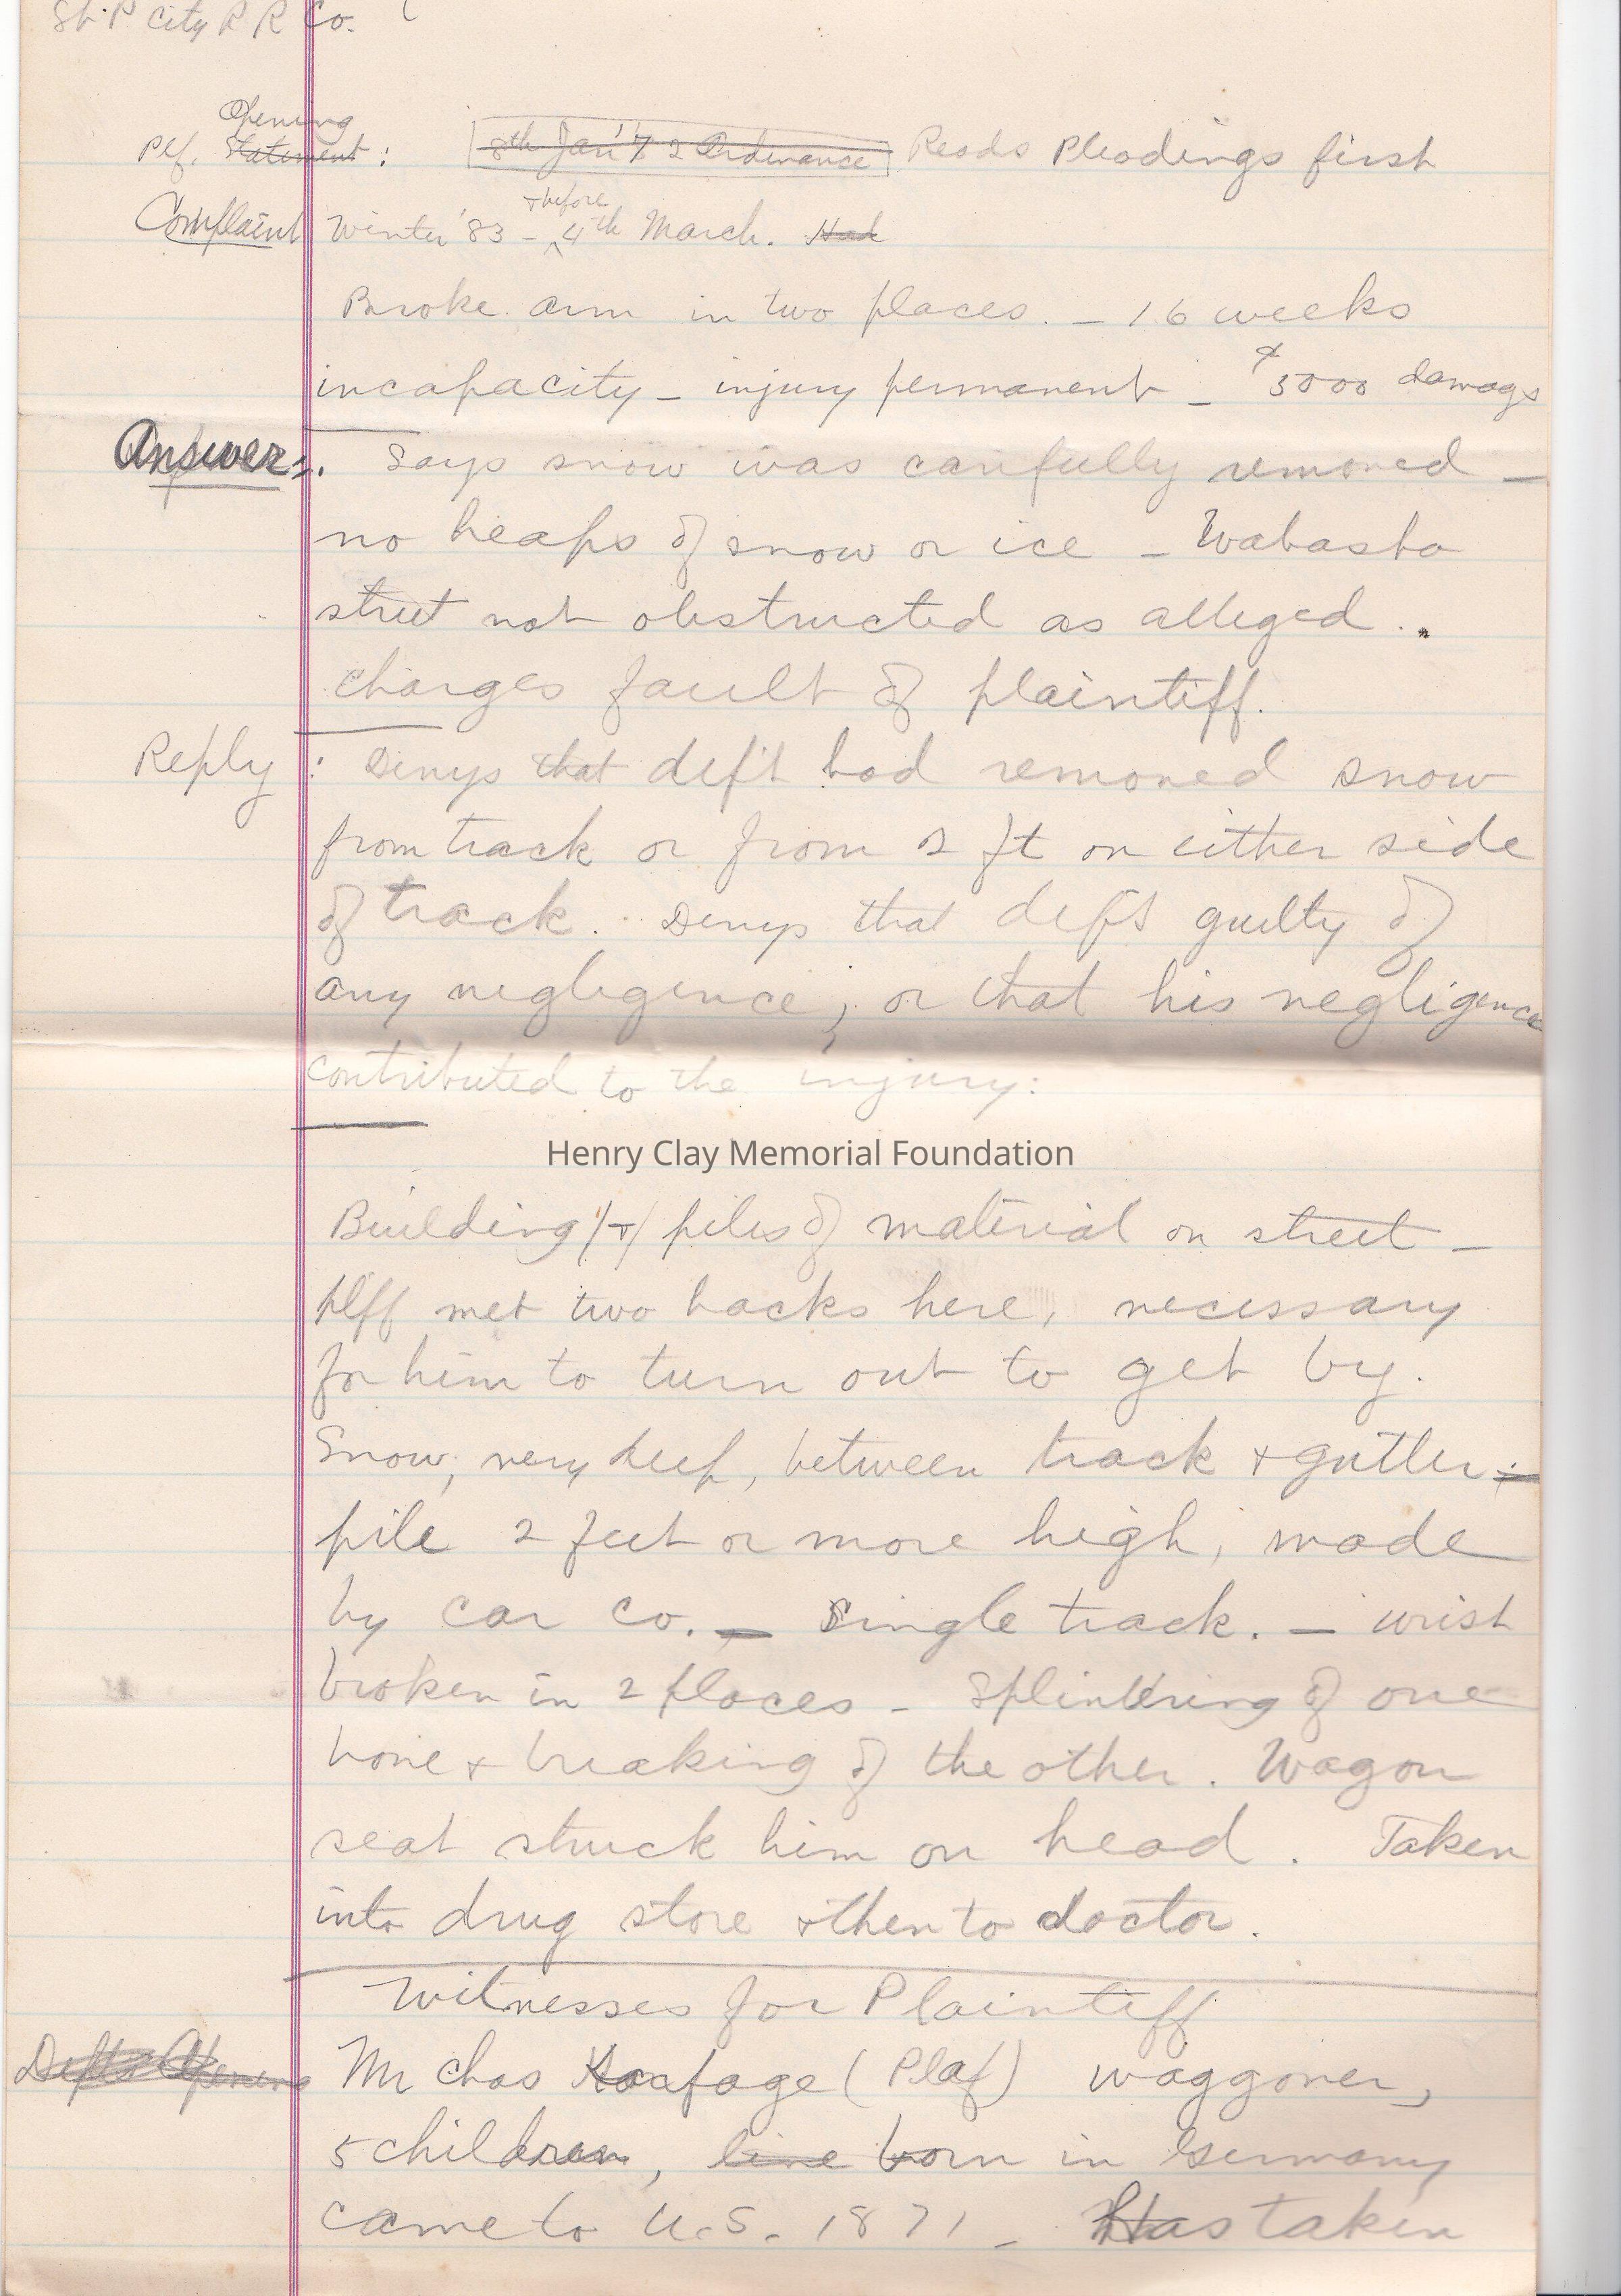 St. P City R R Co.
Opening
Plf. Statement : 8th Jan'y 72 Ordinance Reads Pleadings first
+ before
Complaint Winter '83 - 4th March. Had
Broke arm in two places. - 16 weeks
incapacity - injury permanent - $5000 damags
Answer: Says snow was carefully removed -
no heaps of snow or ice - Wabasha
street not obstructed as alleged.
charges fault of plaintiff.
Reply : Denys that def't had removed snow
from track or from 2 ft on either side
of track. Denys that defts guilty of
any neglegence; or that his negligence
contributed to the injury:
Henry Clay Memorial Foundation
Building /+/ piles of material on street -
Plff met two hacks here, necessary
for him to turn out to get by.
Snow, very deep, between track + gutter -
pile 2 feet or more high, made
by car co. - Single track. - wrist
broken in 2 places - Splintering of one
bone + breaking of the other. Wagon
seat struck him on head. Taken
into drug store + then to doctor.
Witnesses for Plaintiff
Defts Opening Mr Chas (Plaf) waggoner,
5 children, live born in Germany
came to U.S. 1871 - Has taken